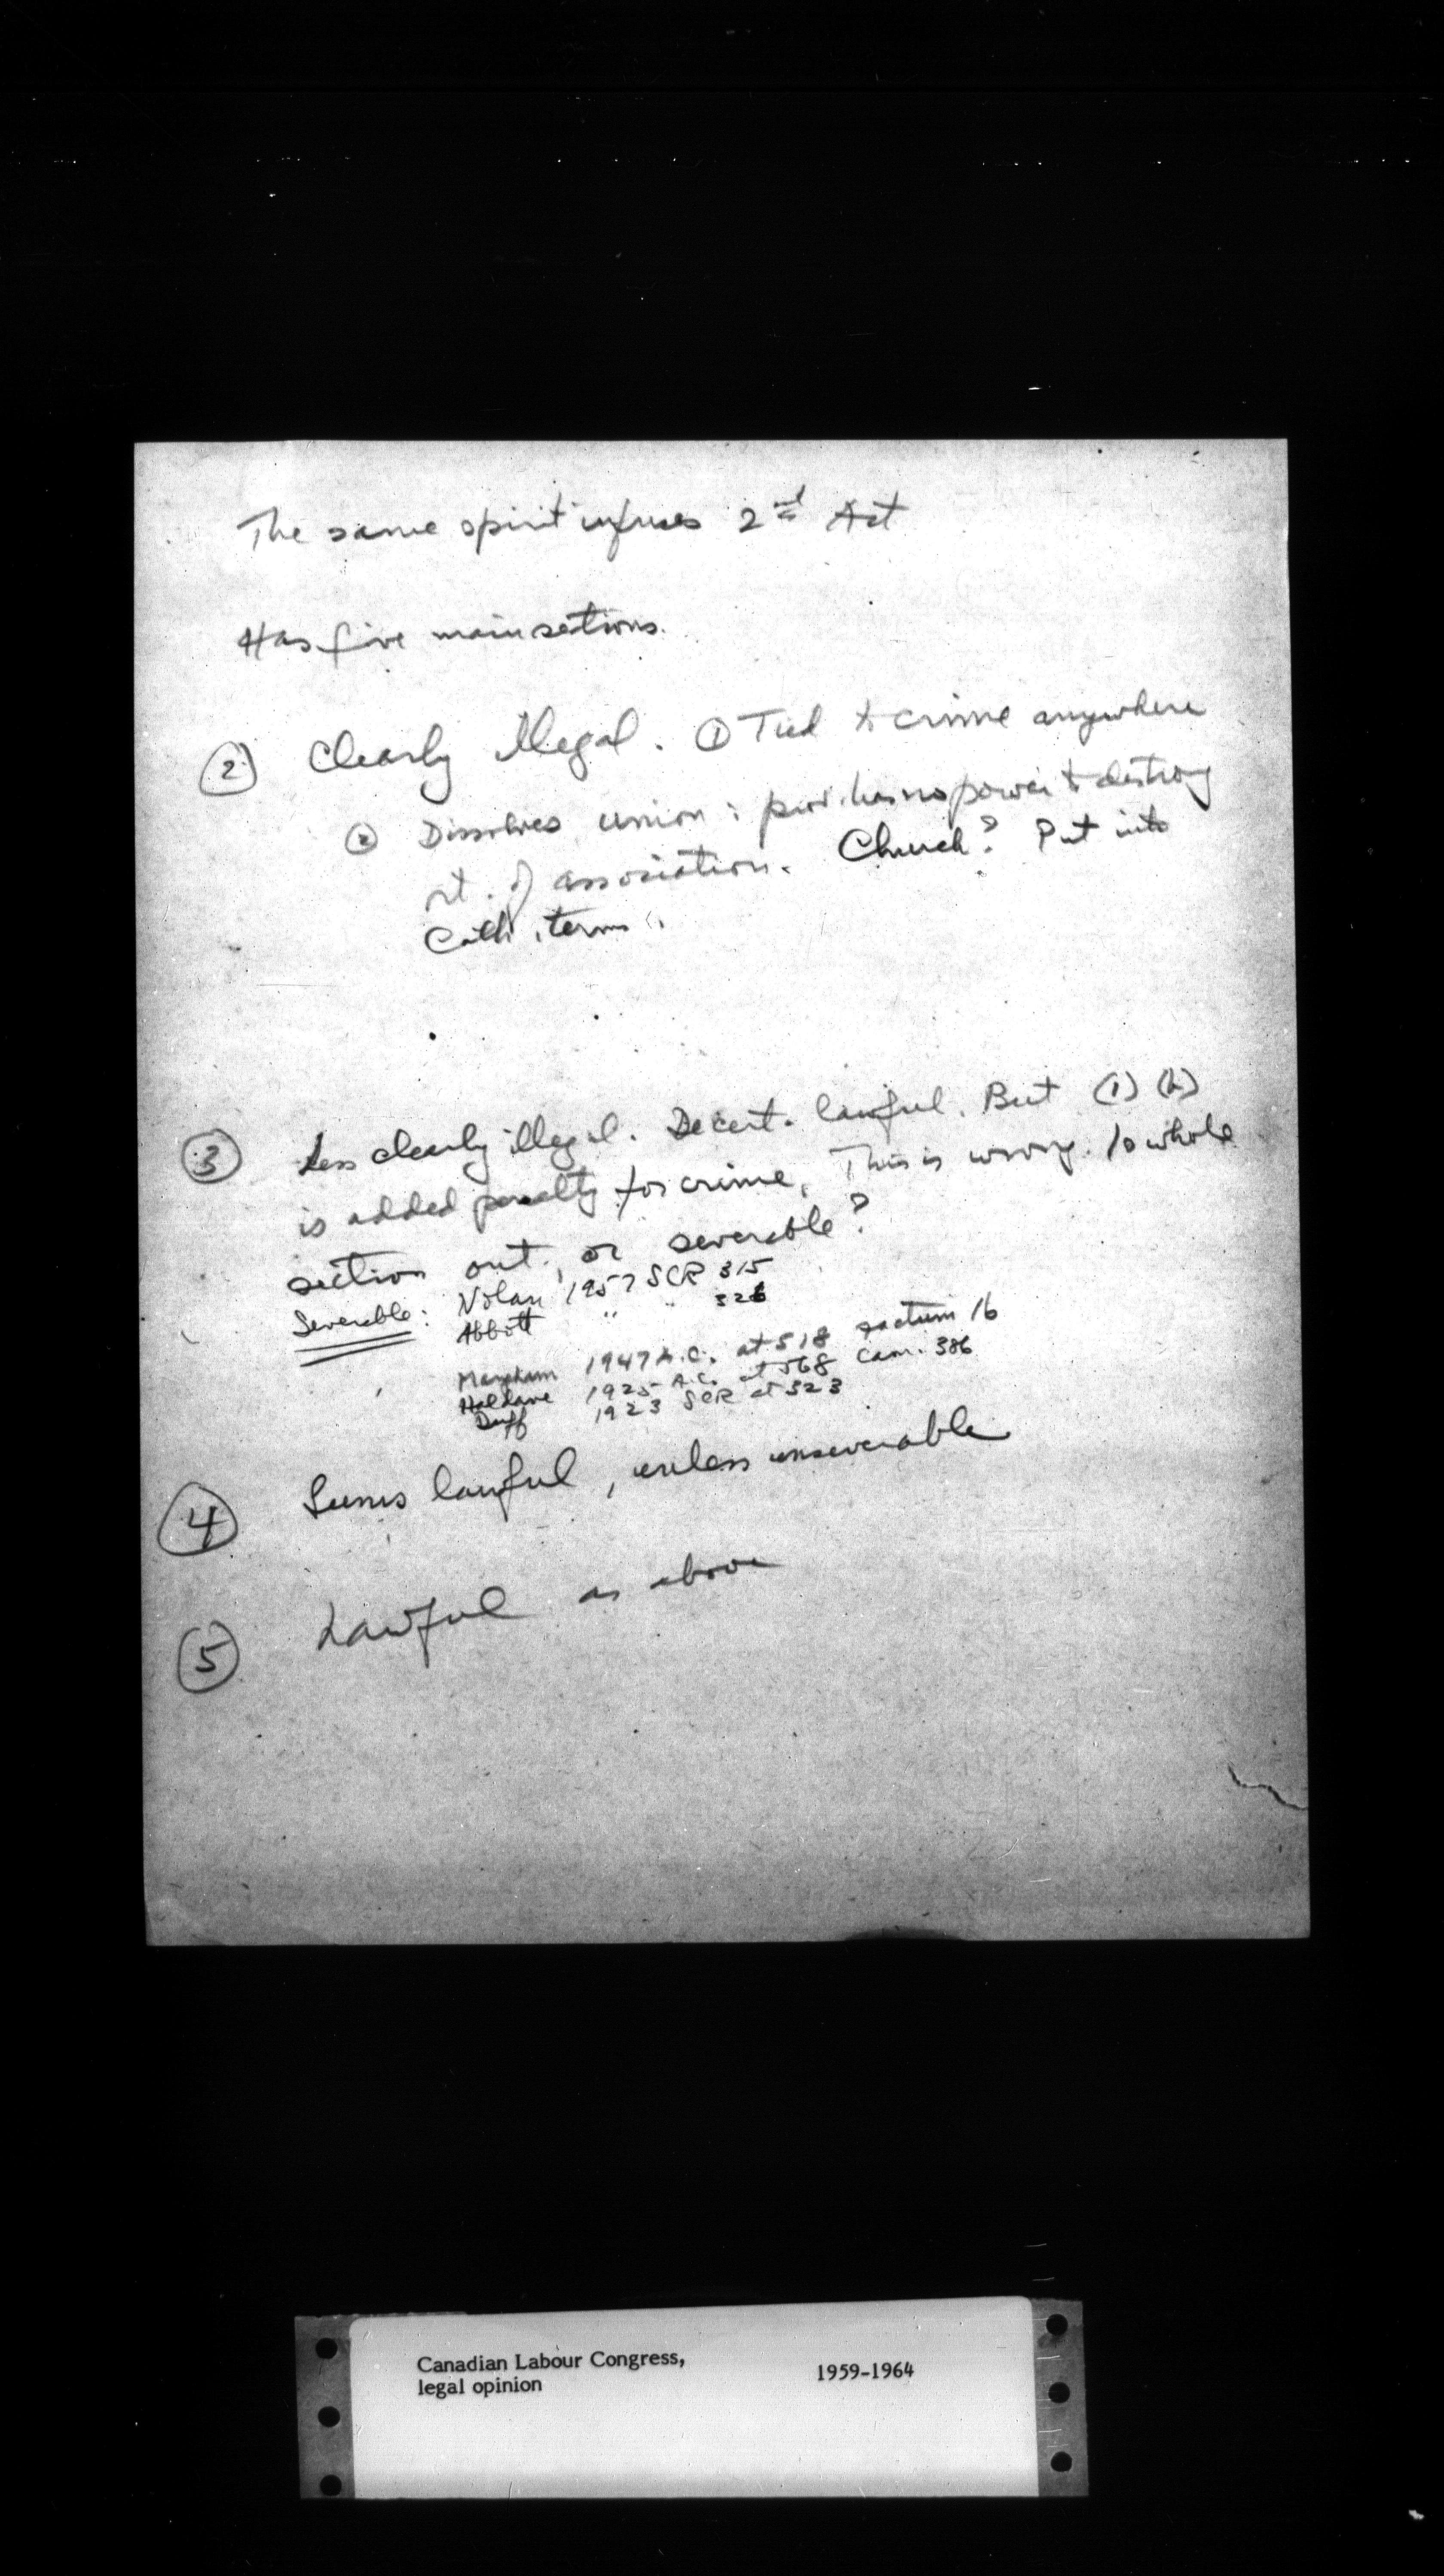 The same spirit infuses 2nd Act
Has five main sections.
② Clearly illegal. ① Tied to crime anywhere
② Dissolves union : prov. has no power to destroy
rt. of association. Church? Put into
Cath. terms.
③ Less clearly illegal. Decert. lawful. But (1) (b)
is added penalty for crime. This is wrong. Is whole
section out, or severable?
Severable: Nolan 1957 SCR 315
Abbott " " 326
1947 A.C. at 518 factum 16
Haldane 1925 A.C. at 568 Cam. 386
Duff 1923 SCR at 323
④ Seems lawful, unless unseverable
⑤ Lawful as above
Canadian Labour Congress, 1959-1964
legal opinion